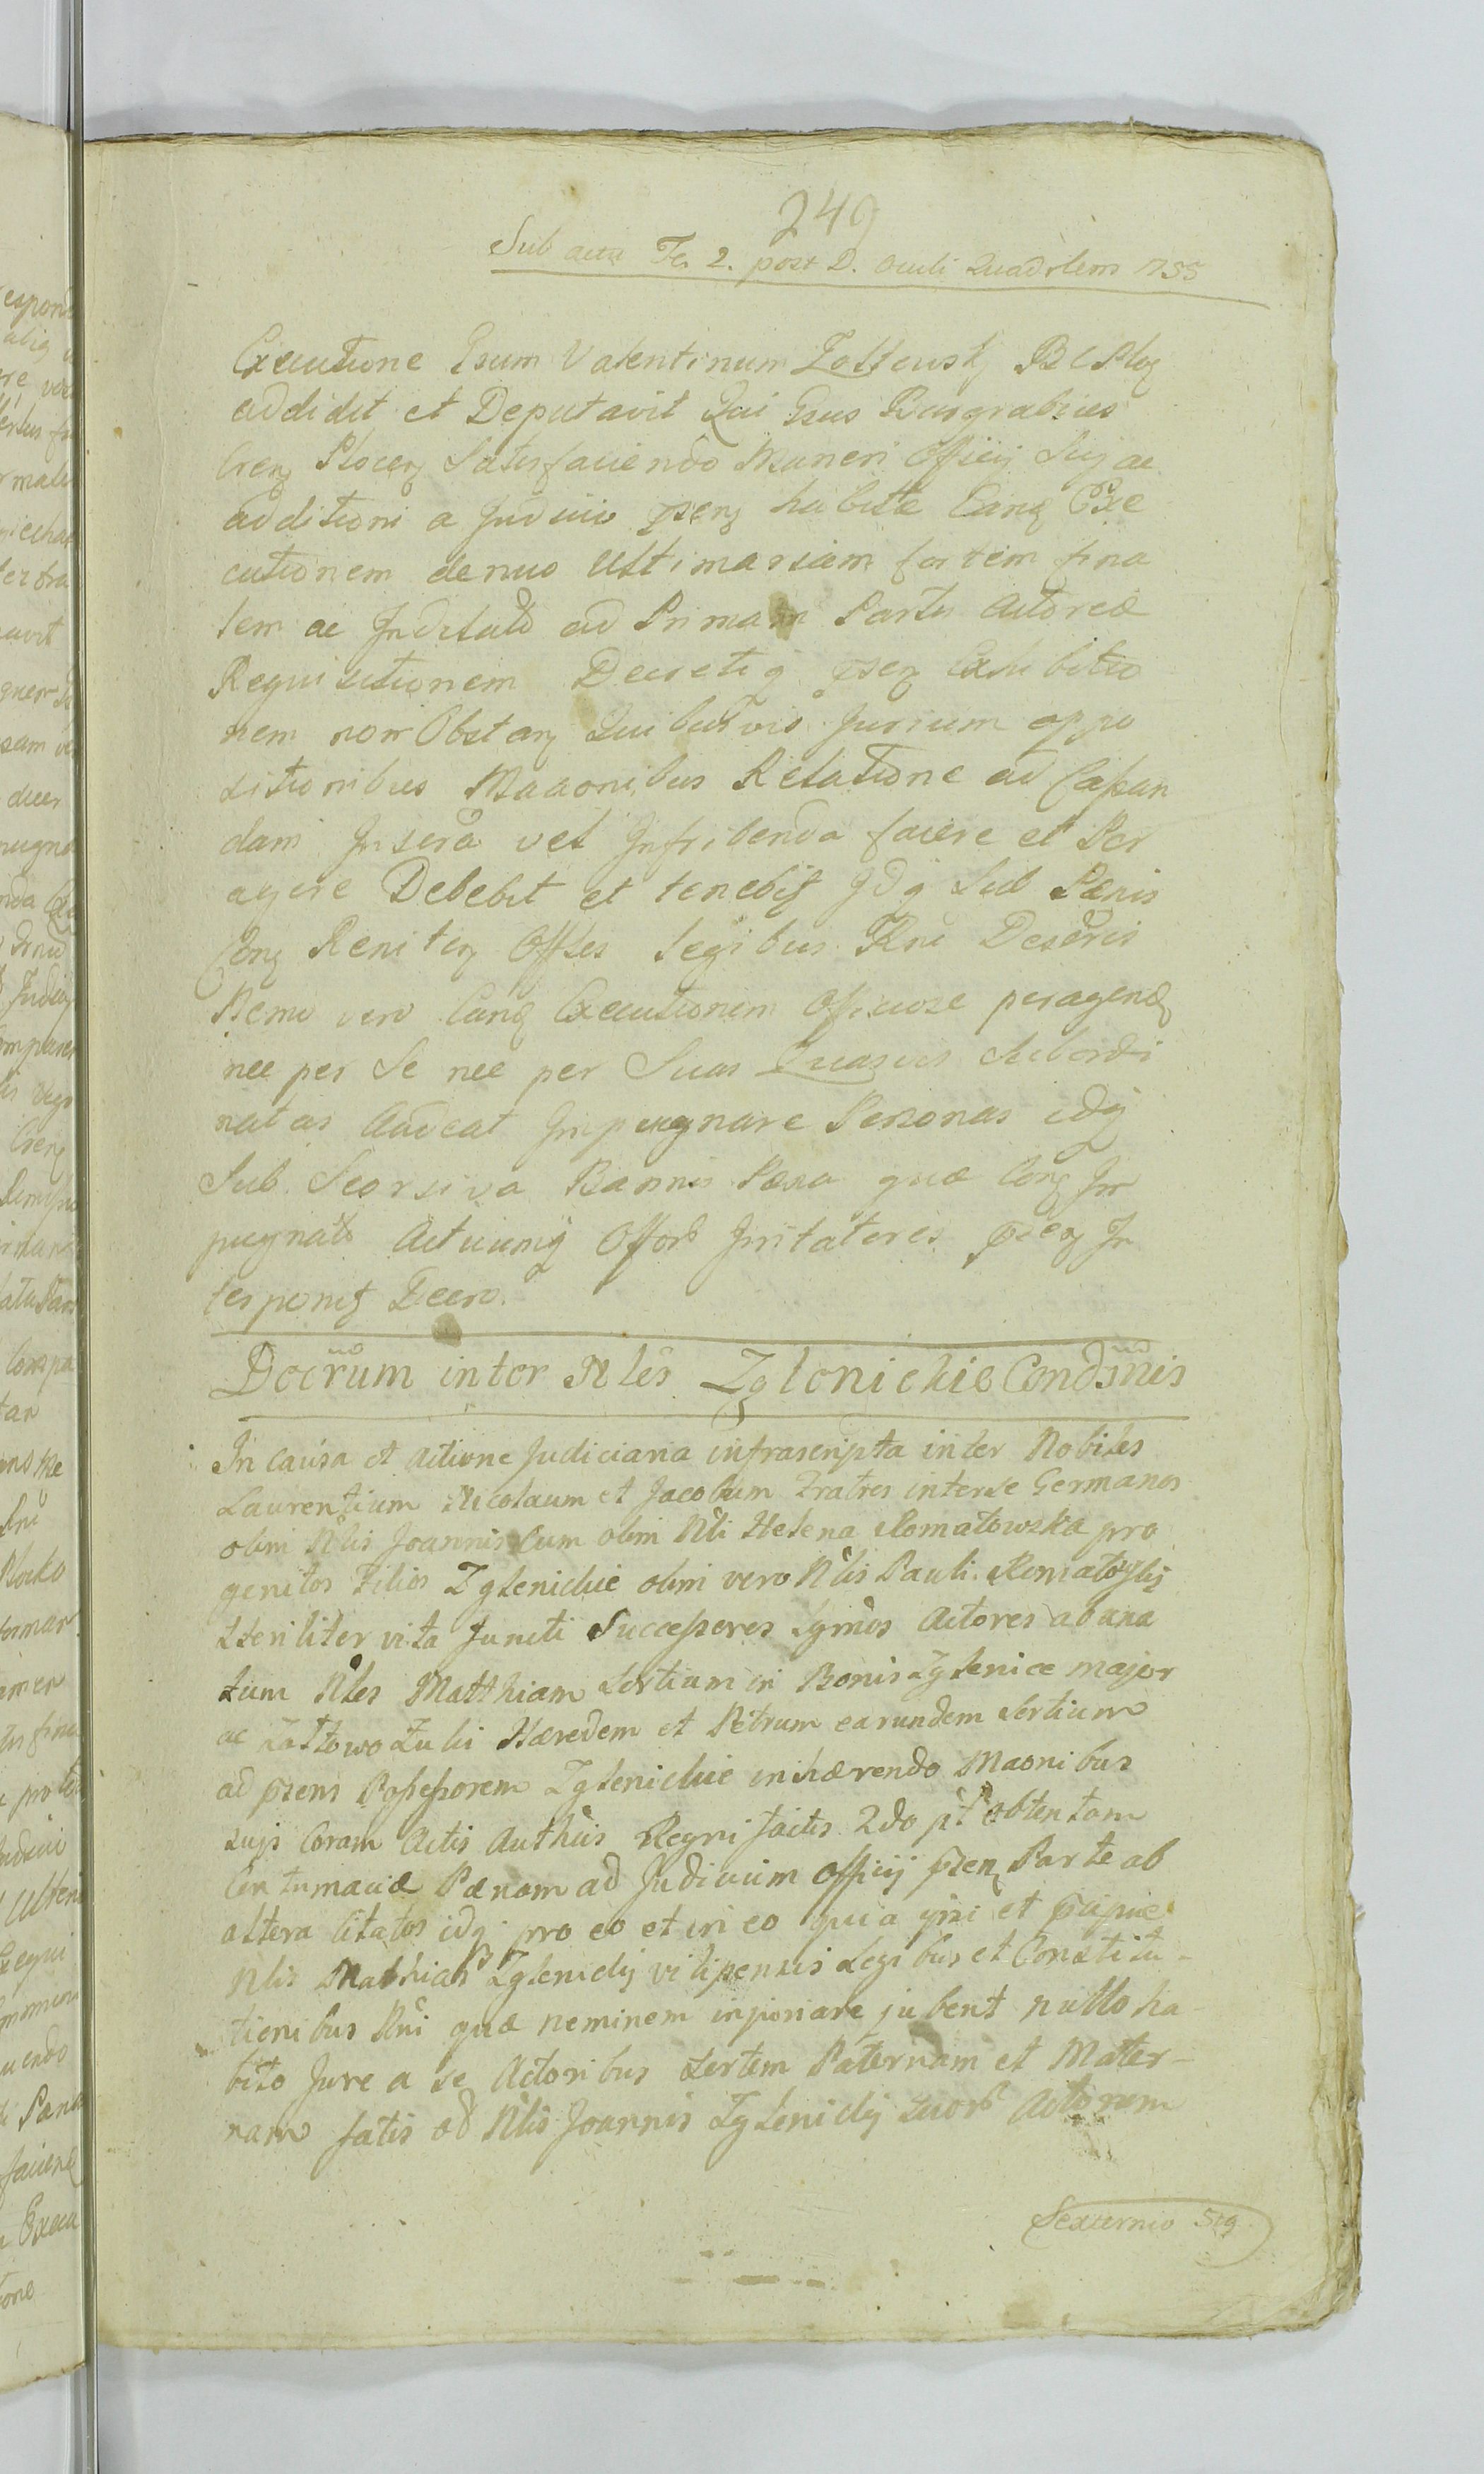 249
Sub actu Fer 2. post D. Oculi Quadrlem 1755
Executione Gsum Valentinum Zołtowski BC Ploc
addidit et Deputavit Qui Gsus Burgrabius
Crenz Plocen Satisfaciendo Muneri Officij Suj ac
additioni a Judicio psenz habitae Eanq Exe
cutionem denuo Ultimariam fortem fina
lem ac Indilatd ad Primam Partis Actoreæ
Requisitionem Decretiq psenz Exhibitio
nem non Obstanz Quibusvis Jurium oppo
sitionibus Maaonibus Relatione ad Capan
dam Insera vel Infribenda facere et Per
agere Debebit et tenebit Idq Sub Pænis
Conz Renitenz Offles legibus Rni Descris
Nemo vero Eanq Executionem Officiose peragendz
nec per Se nec per Suas Quasvis Subordi
natas Audeat Impugnare Personas idq
Sub Seorsiva Bannis Pæna quæ Conz Im
pugnats Actuumq Offor Irritatores psenz In
terponit Decro.
Docrum inter Nles Zglenickie Condsnis
In Causa et Actione Judiciaria infrascripta inter Nobiles
Laurentium Nicolaum et Jacobum Fratres interse Germanos
olim Nlis Joannis Cum olim Nli Helena Romatowska pro
genitos Filios Zglenickie olim vero Nlis Pauli Romatowskj
Steriliter vita functi Successores Lgmos Actores ab una
tum Nles Matthiam Sortium in Bonis Zglenice major
ac Zattowo Łuki Hæredem et Petrum earundem Sortium
ad psens Possessorem Zglenickie inhærendo Maonibus
sujs Coram Actis Authcis Regni factis 2do pt obtentam
Contumaciæ Pænam ad Judicium Officij psenz Parte ab
altera Citatos idq pro eo et in eo quia ipsi et pcipue
Nlis Mathias Zglenickj vilipensis Legibus et Constitu-
tionibus Rni quæ neminem injuriare jubent nullo ha-
bito Jure a se Actoribus Sortem Paternam et Mater-
nam fatis od Nlis Joannis Zglenickj suor Actorum
Sexternio 5tg